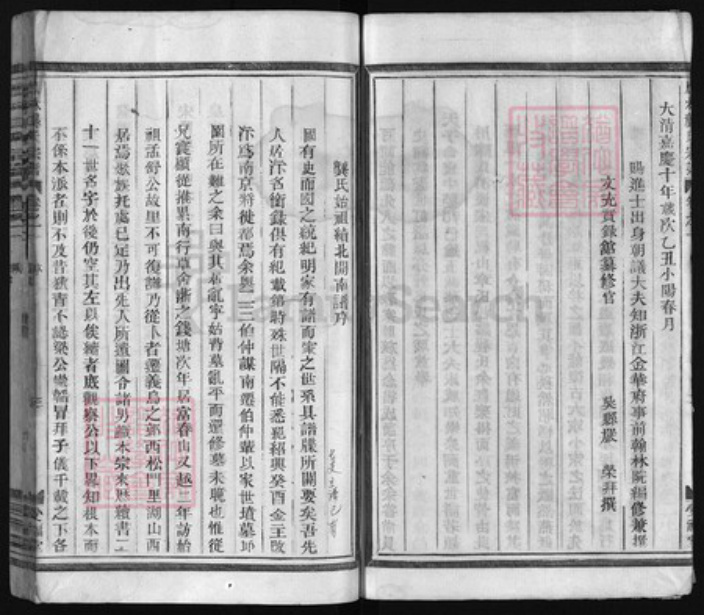 大清嘉慶十年歲次乙丑小陽春月
賜進士出身朝議大夫知浙江金華府事前翰林院編修兼撰
文充實錄館纂修官 吳郡嚴 榮拜撰
龔氏始祖續北開南譜序
國有史而國之統紀明家有譜而家之世系具譜牒所關要矣吾先
人居汴各銜錄俱有紀載第時殊世隔不能悉紀紹興癸酉金主改
汴爲南京將徙都焉余與二三伯仲謀南遷伯仲輩以家世墳墓邱
園所在難之余曰與其居亂寧姑背墓亂平而還修墓未晚也惟從
兄寘願從推累南行草舍浙之錢塘次年居富春山又越二年訪始
祖孟舒公故里不可復識乃從卜者遷義烏之鄧西松門里湖山西
居焉欸族托處已定乃出先人所遺圖令諸男織本宗來歷續書二
十一世名字於後仍空其左以俟續者庶觀察公以下畧知根本而
不係本派者則不及昔狄青不認梁公崇韜冒拜子儀千載之下各